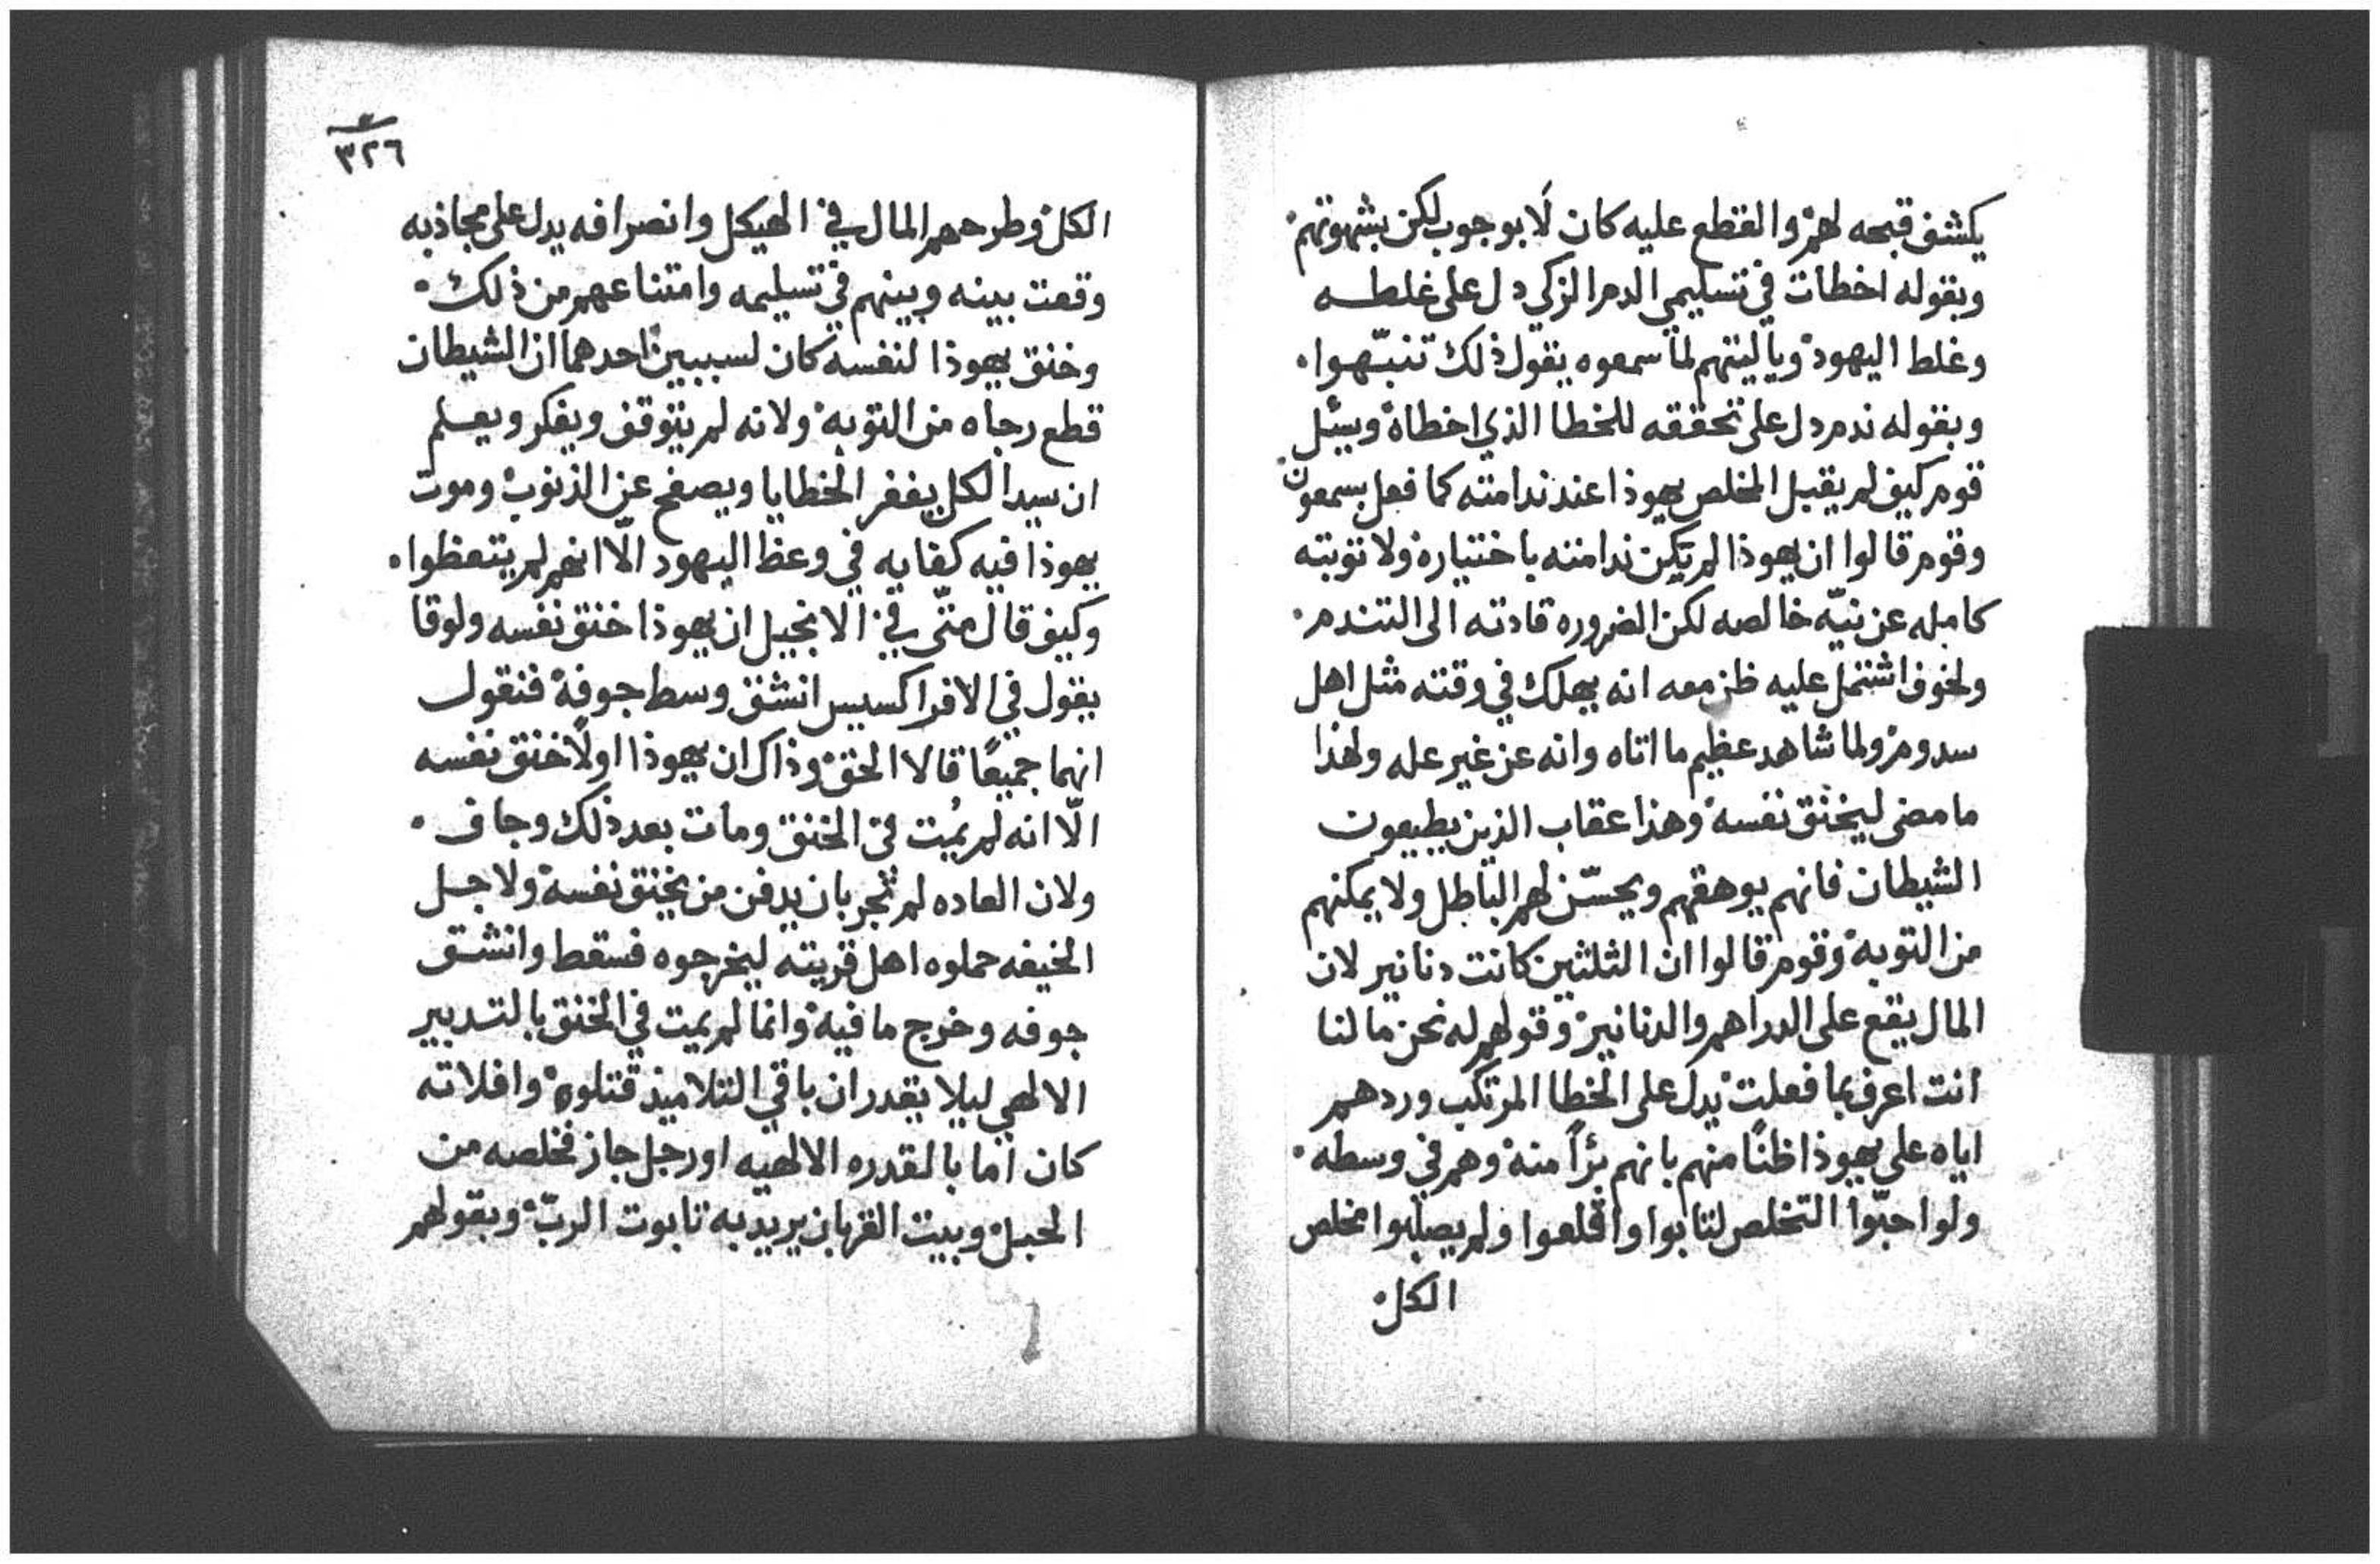 يكشف قبحه لهم والقطع عليه كان لا بوجوب لكن بشهوتهم
وبقوله اخطات في تسليمي الدم الزكي دل على غلطه
وغلط اليهود وياليتهم لما سمعوه يقول ذلك تنبّهوا
وبقوله ندم دل على تحققه للخطا الذي اخطاه ويسئل
قوم كيف لم يقبل المخلص يهوذا عند ندامته كما فعل بسمعون
وقوم قالوا ان يهوذا لم تكن ندامته باختياره ولا توبته
كامله عن نيّه خالصه لكن الضروره قادته الى التندم
ولخوف اشتمل عليه ظن معه انه يهلك في وقته مثل اهل
سدوم ولما شاهد عظيم ما اتاه وانه عن غير عله ولهذا
ما مضى ليخنق نفسه وهذا عقاب الذين يطيعون
الشيطان فانهم يوهقهم ويحسّن لهم الباطل ولا يمكنهم
من التوبه وقوم قالوا ان الثلثين كانت دنانير لان
المال يقع على الدراهم والدنانير وقولهم له نحن ما لنا
انت اعرف بما فعلت يدل على الخطا المرتكب وردهم
اياه على يهوذا ظنًا منهم بانهم برًا منه وهم في وسطه
ولو احبّوا التخلص لتابوا واقلعوا ولم يصلبوا مخلص
الكل
٣٢٦
الكل وطرحهم المال في الهيكل وانصرافه يدل على مجاذبه
وقعت بينه وبينهم في تسليمه وامتناعهم من ذلك
وخنق يهوذا لنفسه كان لسببين احدهما ان الشيطان
قطع رجاه من التوبه ولانه لم يتوقف ويفكر ويعلم
ان سيد الكل يغفر الخطايا ويصفح عن الذنوب وموت
يهوذا فيه كفايه في وعظ اليهود الّا انهم لم يتعظوا
وكيف قال متّى في الانجيل ان يهوذا خنق نفسه ولوقا
يقول في الافراكسيس انشق وسط جوفه فنقول
انهما جميعًا قالا الحق وذاك ان يهوذا اولًا خنق نفسه
الّا انه لم يمُت في الخنق ومات بعد ذلك وجاف
ولان العاده لم تجر بان يدفن من يخنق نفسه ولاجل
الخيفه حملوه اهل قريته ليخرجوه فسقط وانشق
جوفه وخرج ما فيه وانما لم يمت في الخنق بالتدبير
الالهي ليلا يقدر ان باقي التلاميذ قتلوه وافلاته
كان اما بالقدره الالهيه او رجل جاز فخلصه من
الحبل وبيت القربان يريد به تابوت الربّ وبقولهم